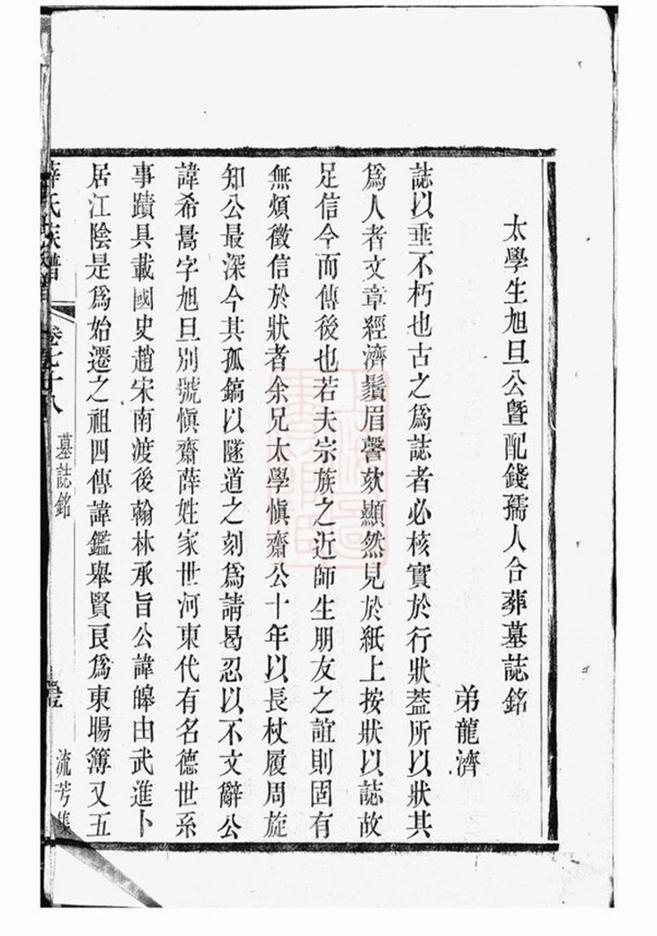 太學生旭旦公暨配錢孺人合葬墓誌銘
弟龍濟
誌以垂不朽也古之爲誌者必核實於行狀葢所以狀其
爲人者文章經濟鬚眉謦欬顯然見於紙上按狀以誌故
足信今而傳後也若夫宗族之近師生朋友之誼則固有
無煩徵信於狀者余兄太學愼齋公十年以長杖履周旋
知公最深今其孤鎬以隧道之刻爲請曷忍以不文辭公
諱希暠字旭旦別號愼齋薛姓家世河東代有名德世系
事蹟具載國史趙宋南渡後翰林承旨公諱皞由武進卜
居江陰是爲始遷之祖四傳諱鑑舉賢良爲東暘簿又五
薛氏族譜
卷七十八
墓誌銘
流芳集